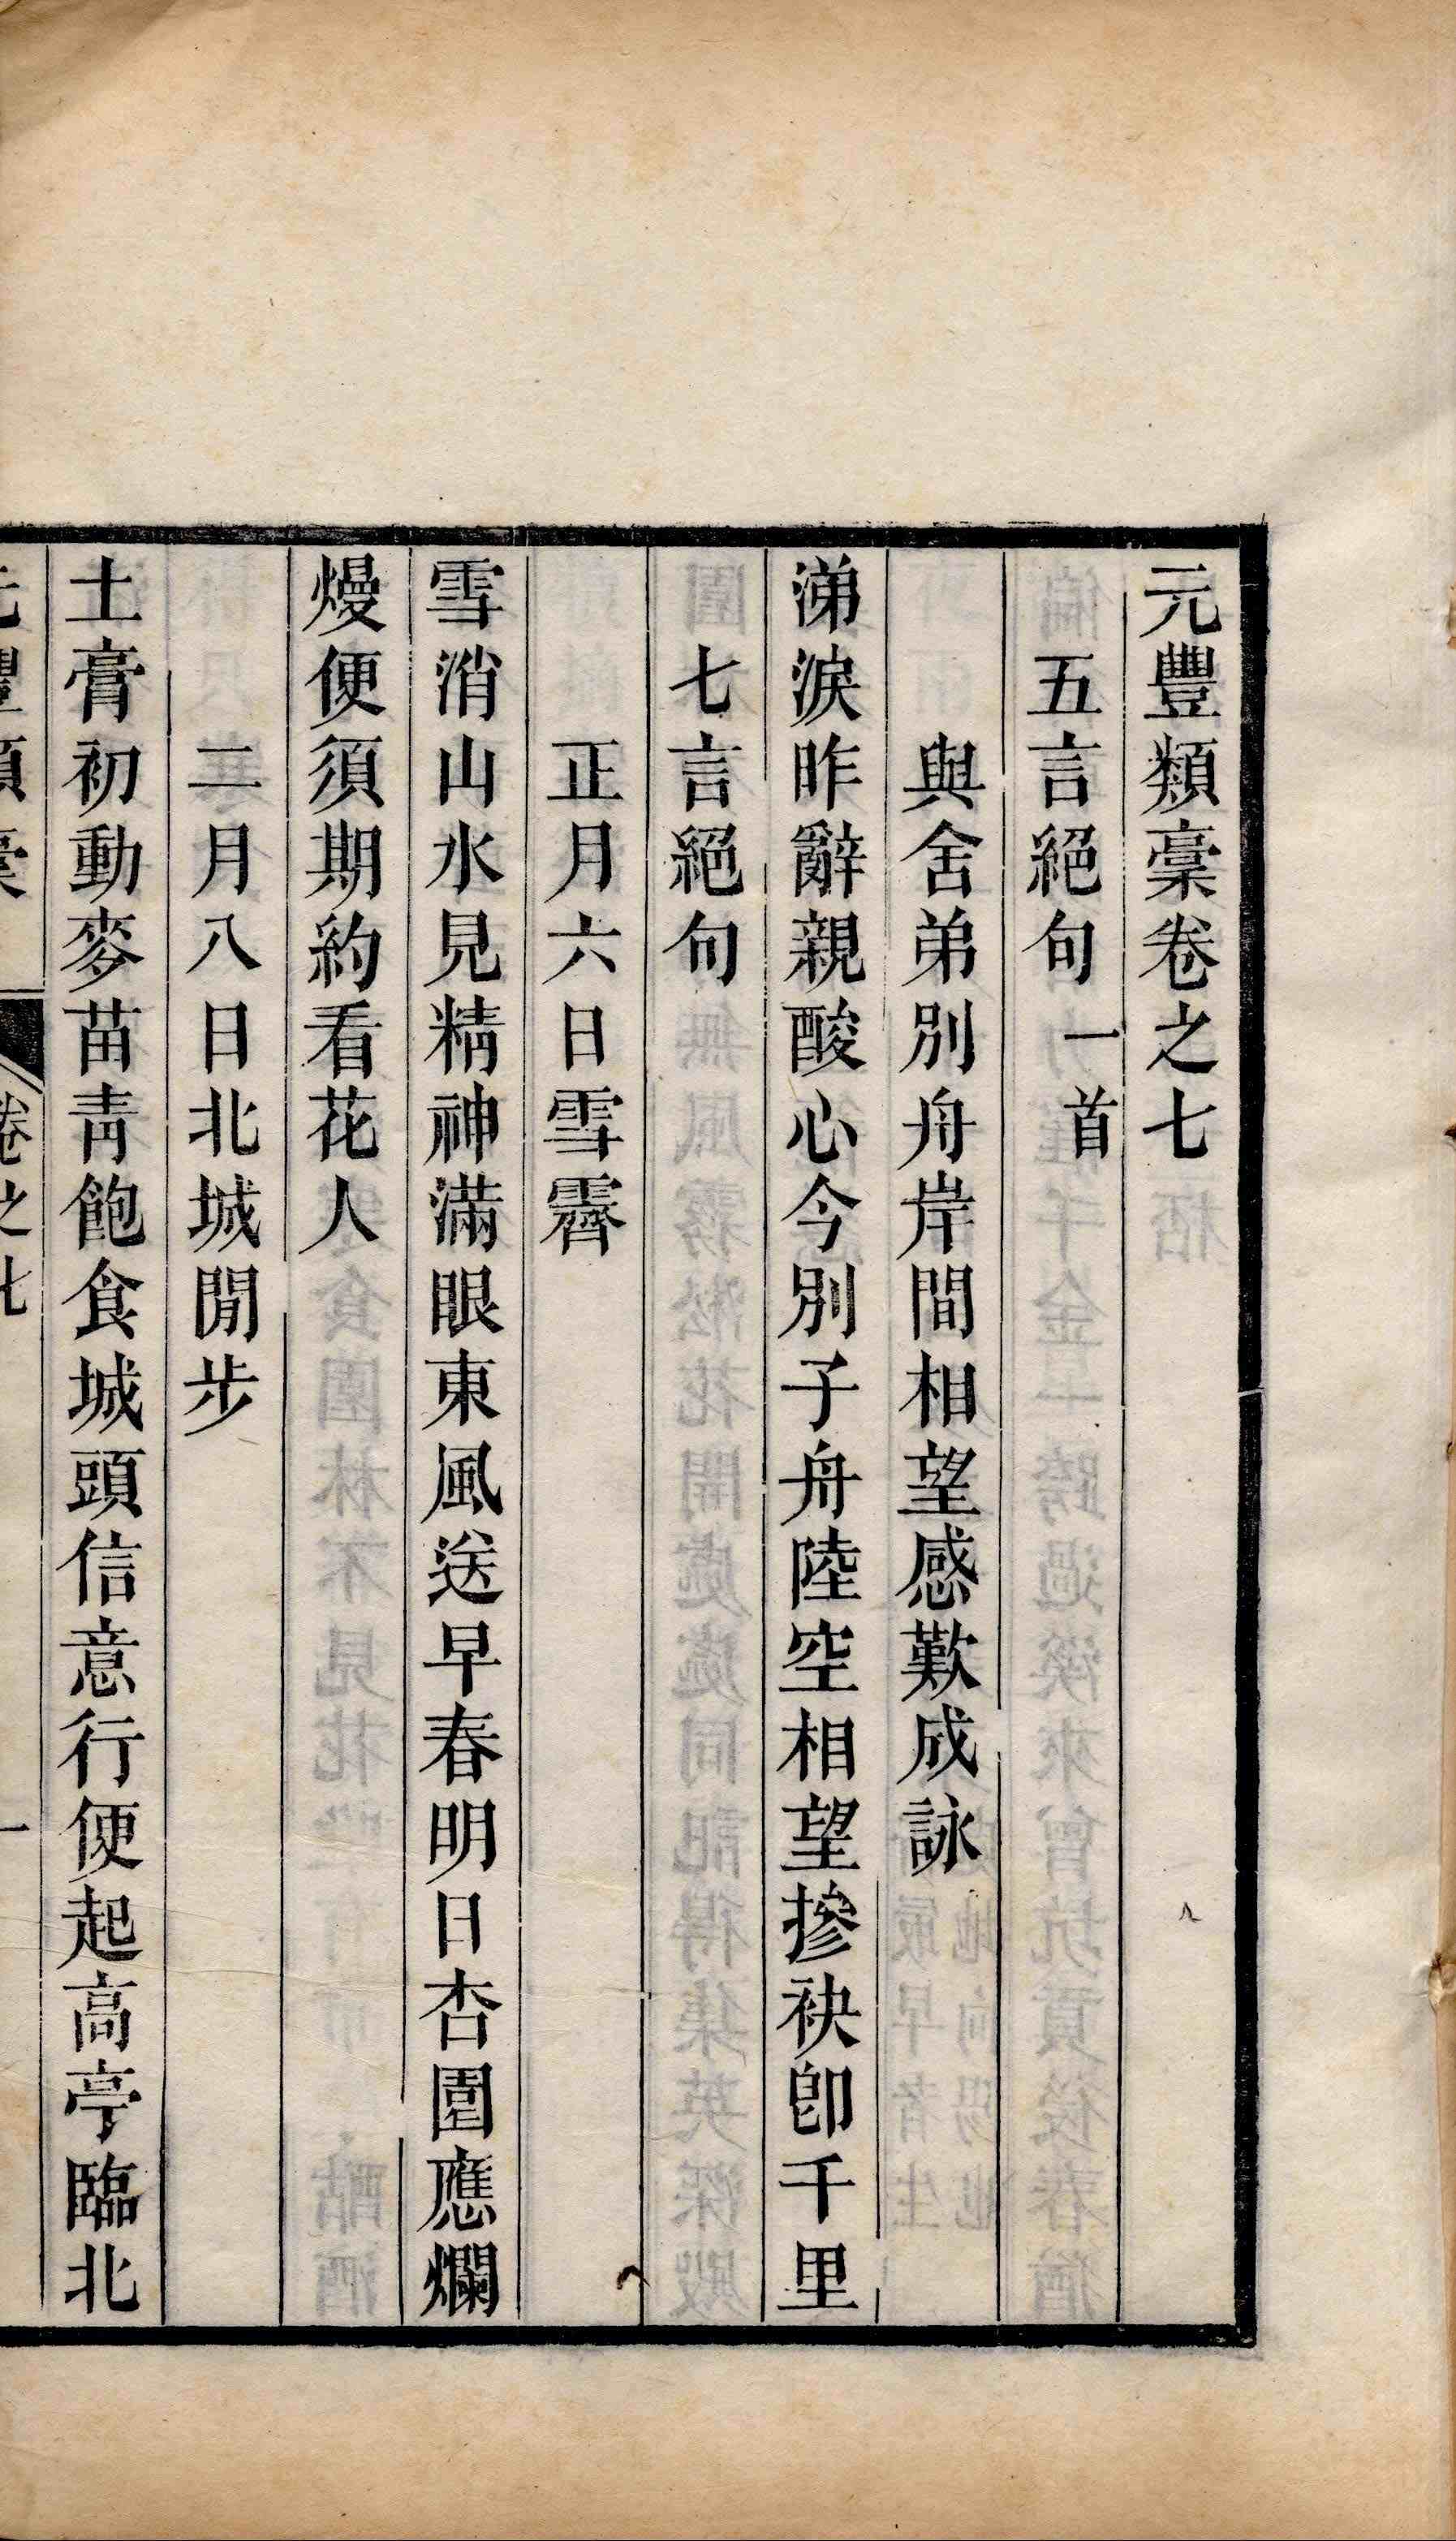 元豐類稾卷之七
五言絕句一首
與舍弟別舟岸間相望感歎成詠
涕淚昨辭親酸心今別子舟陸空相望摻袂卽千里
七言絕句
正月六日雪霽
雪消山水見精神滿眼東風送早春明日杏園應爛
熳便須期約看花人
二月八日北城閒步
土膏初動麥苗靑飽食城頭信意行便起高亭臨北
元豐類稾 卷之七 一